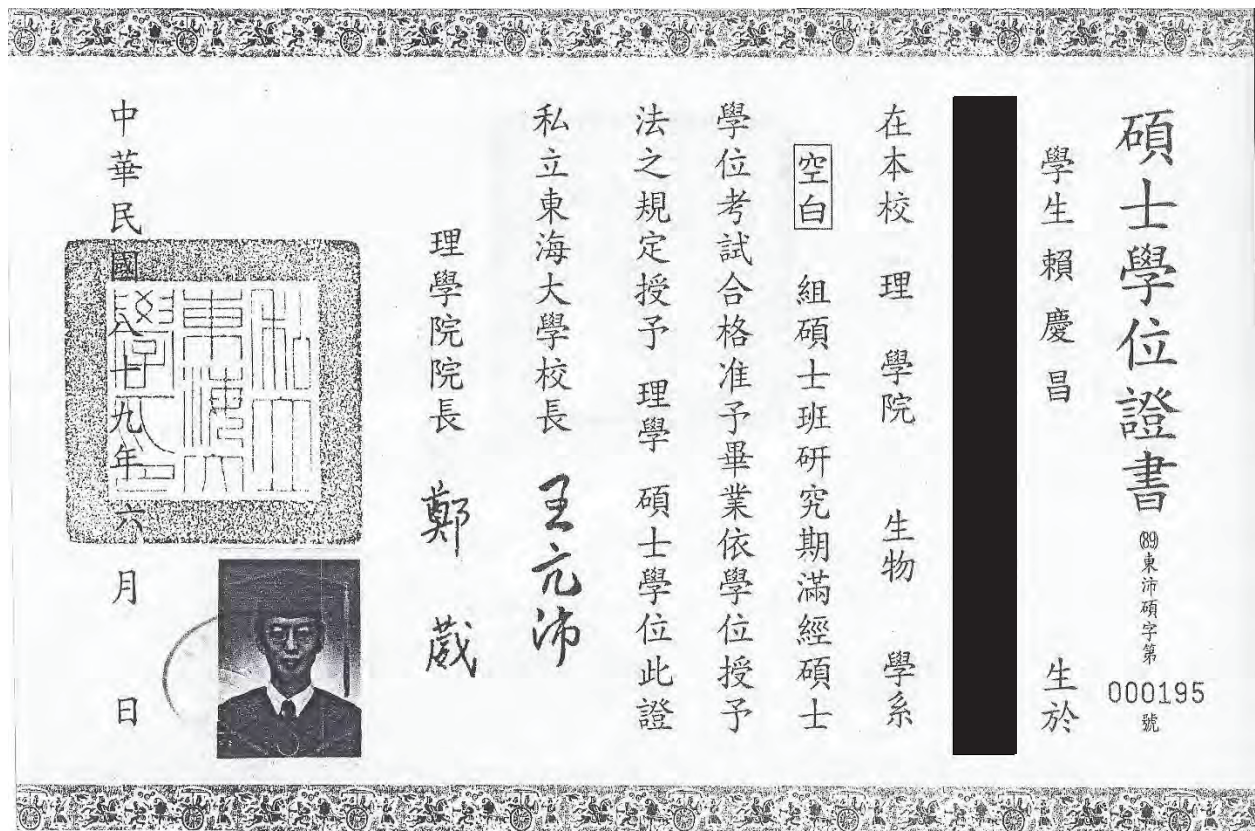 碩士學位證書
(89)東沛碩字第000195號
學生賴慶昌 生於
在本校 理 學院 生物 學系
空白 組碩士班研究期滿經碩士
學位考試合格准予畢業依學位授予
法之規定授予 理學 碩士學位此證
私立東海大學校長 王亢沛
理學院院長 鄭葳
中華民國八十九年六月 日
私立
東海大
學之印